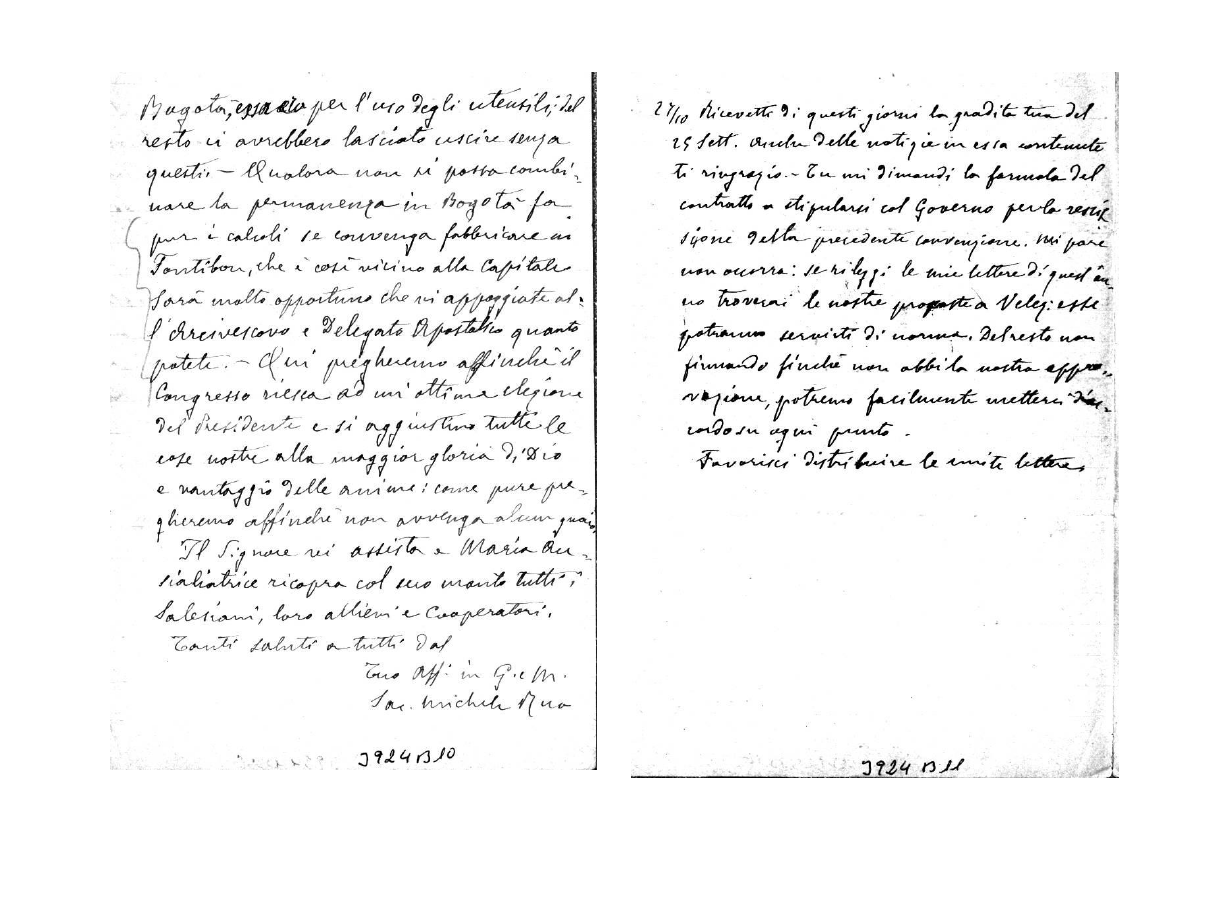 Bogotà, per l'uso degli utensili; del
resto ci avrebbero lasciato uscire senza
questi. – Qualora non si possa combi-
nare la permanenza in Bogotà fa
pur i calcoli se convenga fabbricare in
Fontibon, che è così vicino alla Capitale
Sarà molto opportuno che vi appoggiate al-
l'Arcivescovo e Delegato Apostolico quanto
potete. – Qui pregheremo affinchè il
Congresso riesca ad un' ottima elezione
del Presidente e si aggiustino tutte le
cose nostre alla maggior gloria di Dio
e vantaggio delle anime: come pure pre-
gheremo affinchè non avvenga alcun guaio.
Il Signore vi assista e Maria Au-
siliatrice ricopra col suo manto tutti i
Salesiani, loro allievi e Cooperatori.
Tanti saluti a tutti dal
Tuo Aff. in G. e M.
Sac. Michele Rua
3924 B 10
27/10 Ricevetti di questi giorni la gradita tua del
25 Sett. Anche delle notizie in essa contenute
ti ringrazio. – Tu mi dimandi la formola del
contratto a stipularsi col Governo per la resci-
sione della precedente convenzione. Mi pare
non occorra: se rileggi le mie lettere di quest'an-
no troverai le nostre proposte a Velez: esse
potranno servirti di norma. Del resto non
firmando finchè non abbi la nostra appro-
vazione, potremo facilmente metterci d'ac-
cordo su ogni punto.
Favorisci distribuire le unite lettere.
3924 B 11